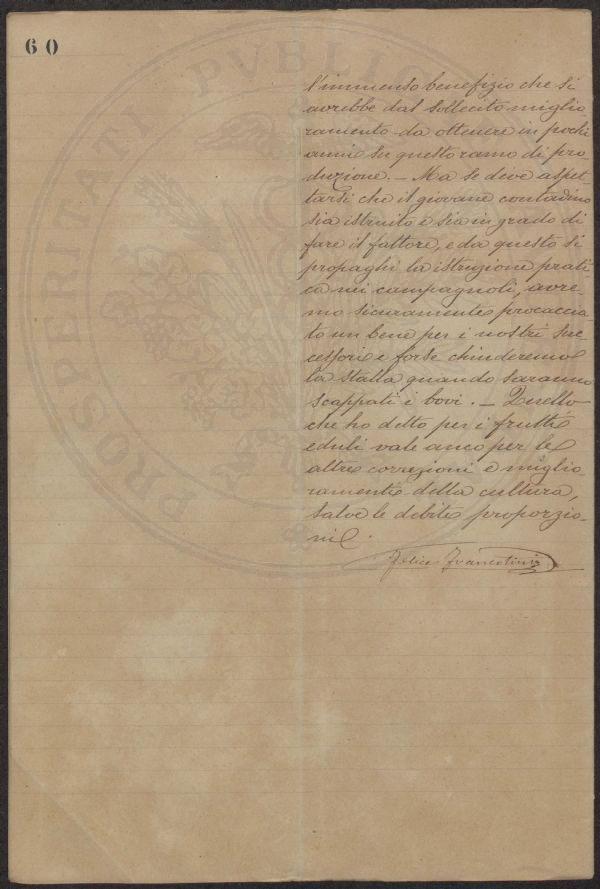 60
l'immenso benefizio che si
avrebbe dal sollecito miglio-
ramento da ottenere in pochi
anni su questo ramo di pro-
duzione. — Ma se deve aspet-
tarsi che il giovane contadino
sia istruito e sia in grado di
fare il fattore, e da questo si
propaghi la istruzione prati-
ca nei campagnoli, avre-
mo sicuramente procaccia-
to un bene per i nostri suc-
cessori e forse chiuderemo
la stalla quando saranno
scappati i bovi. — Quello
che ho detto per i frutti
eduli vale anco per le
altre correzioni e miglio-
ramenti della cultura,
salve le debite proporzio-
ni.
Felice Francolini
PROSPERITATI PVBLICAE